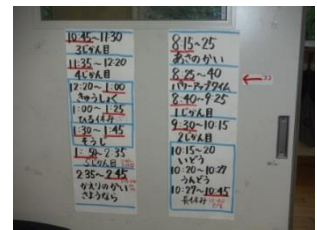 10:45~11:30
3じかん目
11:35~12:20
4じかん目
12:20~1:00
きゅうしょく
1:00~1:25
ひるやすみ
1:30~1:45
そうじ
1:50~2:35
5じかん目
2:35~2:45
かえりのかい
さようなら
8:15~25
あさのかい
8:25~40
パワーアップタイム
8:40~9:25
1じかん目
9:30~10:15
2じかん目
10:15~20
いどう
10:20~10:27
うんどう
10:27~10:45
長休み